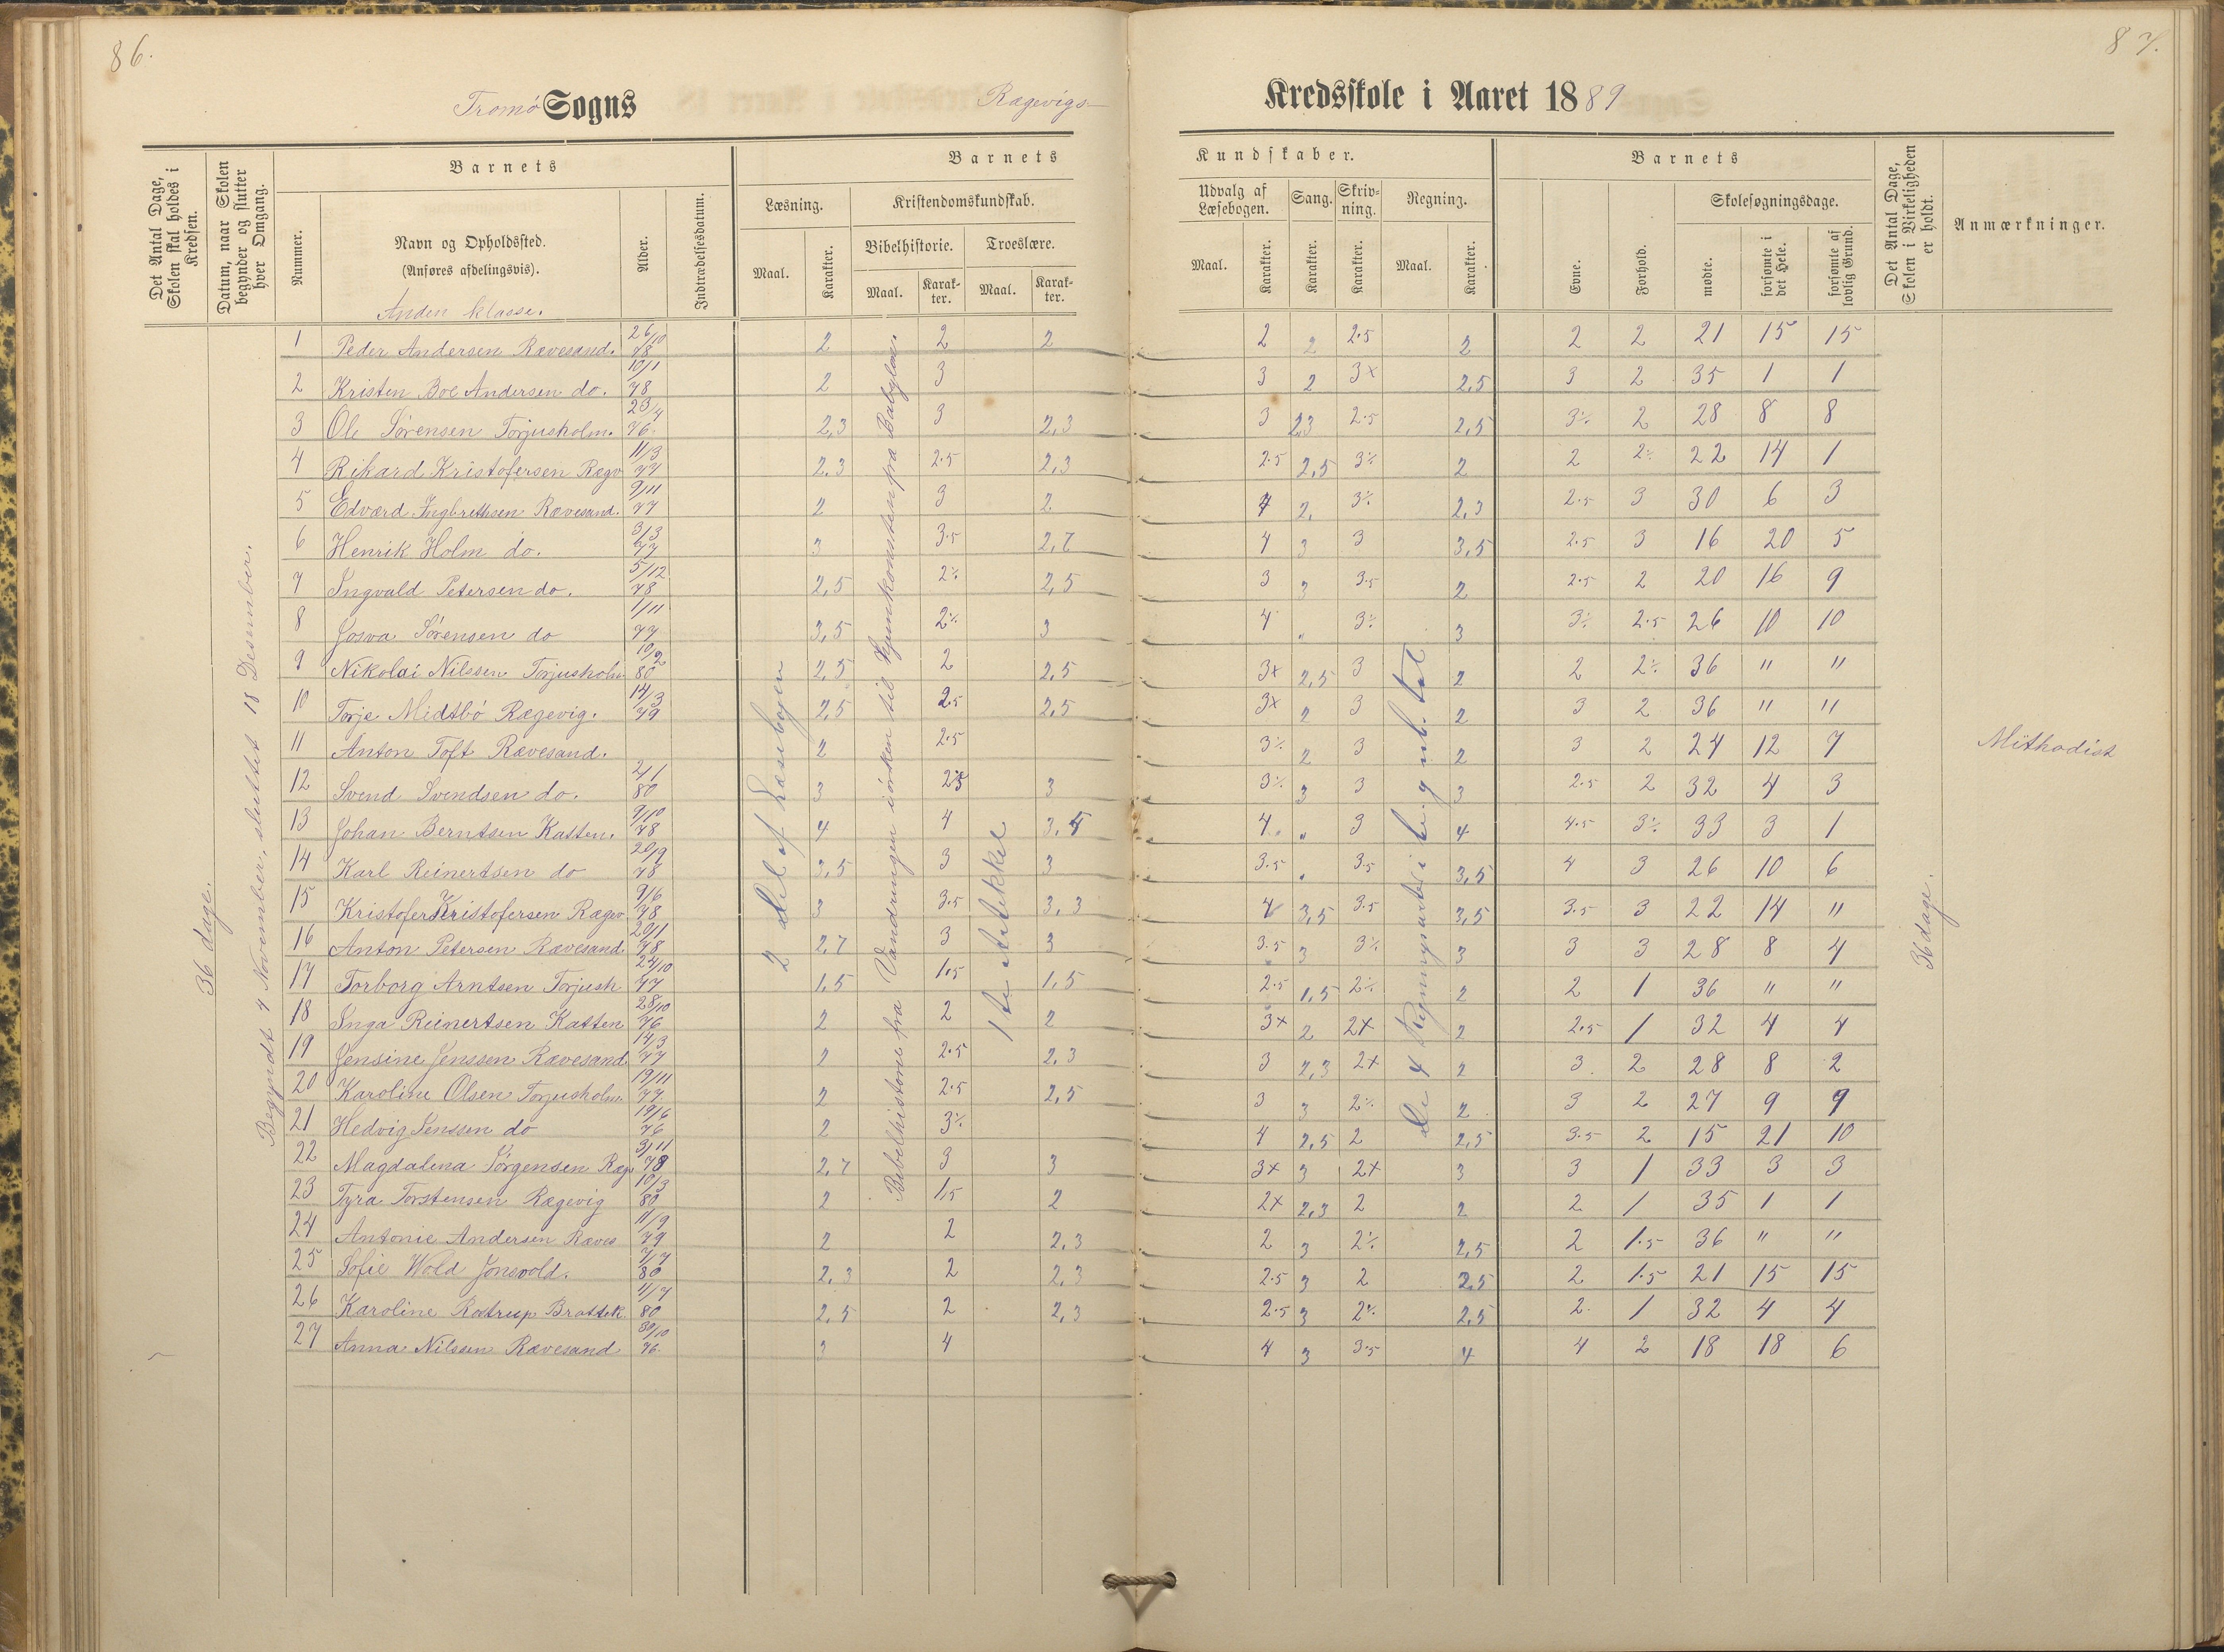 86.
87.
Tromø Sogns Ragevigs Kredsskole i Aaret 1889
Det Antal Dage, Skolen skal holdes i Kredsen.
Datum, naar Skolen begynder og slutter hver Omgang.
Barnets
Nummer.
Navn og Opholdssted.
(Anføres afdelingsvis).
Anden klasse.
Alder.
Indtrædelsesdatum.
Barnets Kundskaber.
Læsning.
Maal.
Karakter.
Kristendomskundskab.
Bibelhistorie.
Maal.
Karakter.
Troeslære.
Maal.
Karakter.
Udvalg af Læsebogen.
Maal.
Karakter.
Sang.
Karakter.
Skrivning.
Karakter.
Regning.
Maal.
Karakter.
Barnets
Evne.
Forhold.
Skolesøgningsdage.
mødte.
forsømte i det Hele.
forsømte af lovlig Grund.
Det Antal Dage, Skolen i Virkeligheden er holdt.
Anmærkninger.
36 dage.
Begyndt 4 November, sluttet 18 Desember.
2 del af Læsebogen
Bibelhistorie fra Vandringen i örken til Hjemkomsten fra Babylon.
1ste Artikkel
De 4 Regningsarter i
36 dage.
1 Peder Andersen Rævesand. 26/10 78 2 2 2 2 2 2.5 2 2 2 21 15 15
2 Kristen Boe Andersen do. 10/1 78 2 3 3 2 3x 2,5 3 2 35 1 1
3 Ole Sørensen Torjusholm. 23/4 76. 2,3 3 2,3 3 2,3 2.5 2,5 3÷ 2 28 8 8
4 Rikard Kristofersen Rægv 11/3 77 2,3 2.5 2,3 2.5 2,5 3÷ 2 2 2÷ 22 14 1
5 Edvard Ingbrethsen Rævesand. 9/11 77 2 3 2 4 2, 3÷ 2,3 2.5 3 30 6 3
6 Henrik Holm do. 3/3 77 3 3.5 2,7 4 3 3 3,5 2.5 3 16 20 5
7 Ingvald Petersen do. 5/12 78 2,5 2÷ 2,5 3 3 3.5 2 2.5 2 20 16 9
8 Josva Sørensen do 1/11 77 3,5 2÷ 3 4 " 3÷ 3 3÷ 2.5 26 10 10
9 Nikolai Nilssen Torjusholm 10/2 80 2,5 2 2,5 3x 2,5 3 2 2 2÷ 36 " "
10 Torje Midtbö Rægevig. 14/3 79 2,5 2.5 2,5 3x 2 3 2 3 2 36 " "
11 Anton Toft Rævesand. 2 2.5 3÷ 2 3 2 3 2 24 12 7 Mithodist
12 Svend Svendsen do. 2/1 80 3 2.5 3 3÷ 3 3 3 2.5 2 32 4 3
13 Johan Berntsen Katten. 9/10 78 4 4 3,5 4. " 3 4 4.5 3÷ 33 3 1
14 Karl Reinertsen do 20/9 78 3,5 3 3 3.5 " 3.5 3,5 4 3 26 10 6
15 Kristofer Kristofersen Rægev 9/6 78 3 3.5 3,3 4 3,5 3.5 3,5 3.5 3 22 14 "
16 Anton Petersen Rævesand 20/1 78 2,7 3 3 3.5 3 3÷ 3 3 3 28 8 4
17 Torborg Arntsen Torjush 24/10 77 1,5 1.5 1,5 2.5 1,5 2÷ 2 2 1 36 " "
18 Inga Reinertsen Katten 28/10 76 2 2 2 3x 2 2x 2 2.5 1 32 4 4
19 Jensine Jenssen Rævesand 14/3 77 2 2.5 2,3 3 2,3 2x 2 3. 2 28 8 2
20 Karoline Olsen Torjusholm 19/11 77. 2 2.5 2,5 3 3 2÷ 2 3 2 27 9 9
21 Hedvig Jenssen do 19/6 76 2 3÷ 4 2,5 2 2,5 3.5 2 15 21 10
22 Magdalena Jörgensen Ræg 3/11 78 2,7 3 3 3x 3 2x 3 3 1 33 3 3
23 Tyra Torstensen Rægevig 10/3 80 2 1.5 2 2x 2,3 2 2 2 1 35 1 1
24 Antonie Andersen Ræves 11/9 79 2 2 2,3 2 3 2÷ 2,5 2 1.5 36 " "
25 Sofie Wold Jonsvold. 7/7 80 2,3 2 2,3 2.5 3 2 2,5 2 1.5 21 15 15
26 Karoline Rostrup Brattek. 11/7 80 2,5 2 2,3 2.5 3 2÷ 2,5 2. 1 32 4 4
27 Anna Nilssen Rævesand 30/10 76. 3 4 4 3 3.5 4 4 2 18 18 6